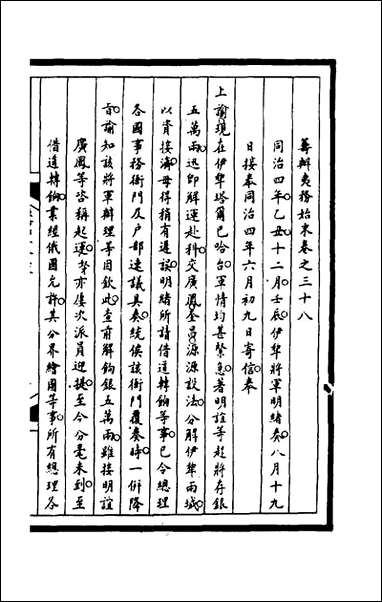 籌辦夷務始末卷之三十八
同治四年乙丑十二月壬辰伊犂將軍明緒奏八月十九
日接奉同治四年六月初九日寄信奉
上諭現在伊犂塔爾巴哈台軍情均甚緊急著明誼等趕將存銀
五萬兩迅即解運赴科交廣鳳奎昌源源設法分解伊犂兩城
以資接濟毋得稍有遲誤明緒所請借道轉餉等事已令總理
各國事務衙門及户部速議具奏統俟該衙門覆奏時一併降
旨諭知該將軍辦理等因欽此查前解餉銀五萬兩雖接明誼
廣鳳等咨稱起運奴才亦屢次派員迎提至今分毫未到至
借道轉餉業經俄國允許其分界繪圖等事所有總理各